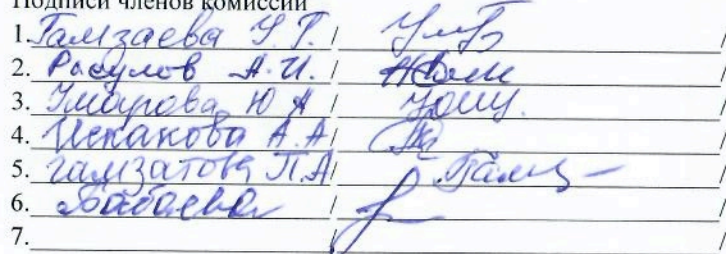 Подписи членов комиссии
1. Гамзаева У.Г. / /
2. Расулов А.И. / /
3. Умарова Ю А / /
4. Искакова А.А / /
5. Гамзатова П.А / /
6. Бабаева / /
7. / /